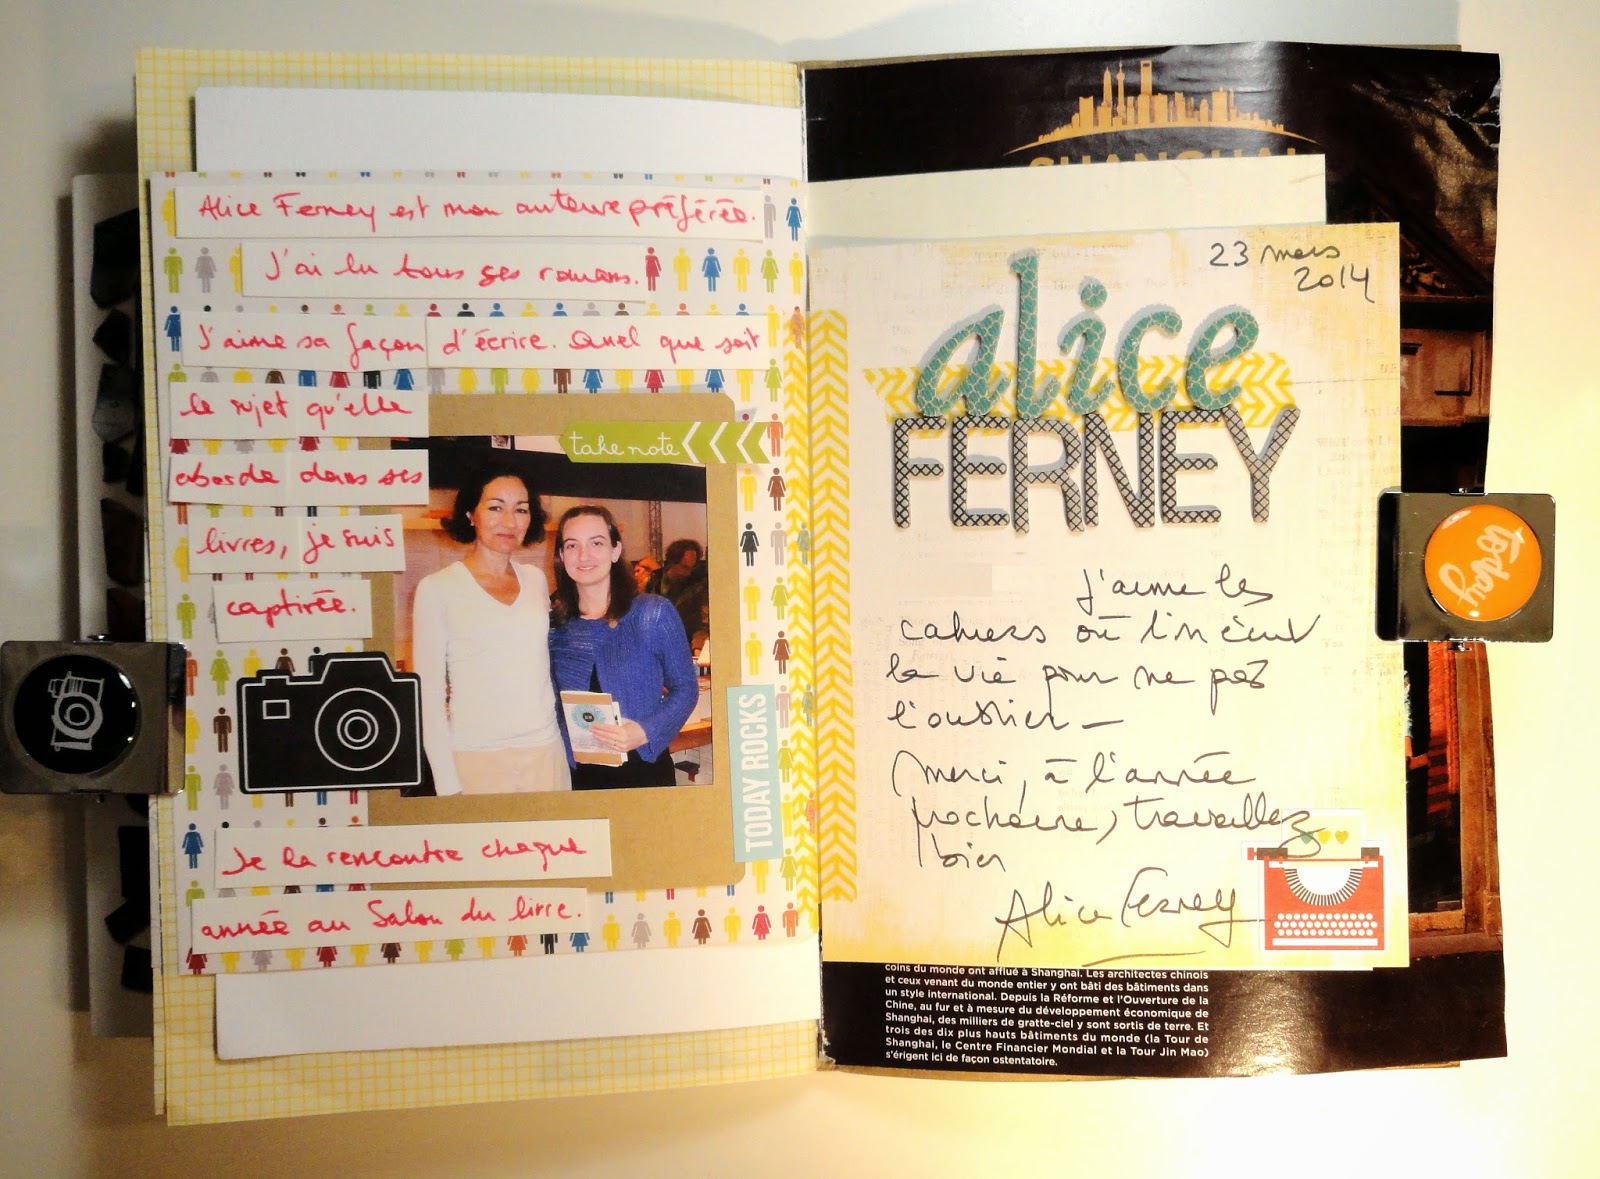 Alice Ferney est mon auteure préférée.
J'ai lu tous ses romans.
J'aime sa façon d'écrire. Quel que soit
le sujet qu'elle
aborde dans ses
livres, je suis
captivée.
take note
TODAY ROCKS
Je la rencontre chaque
année au Salon du livre.
SHANGHAI
23 mars
2014
alice
FERNEY
J'aime les
cahiers où l'on écrit
la vie pour ne pas
l'oublier —
Merci, à l'année
prochaine, travaillez
bien
Alice Ferney
today
coins du monde ont afflué à Shanghai. Les architectes chinois
et ceux venant du monde entier y ont bâti des bâtiments dans
un style international. Depuis la Réforme et l'Ouverture de la
Chine, au fur et à mesure du développement économique de
Shanghai, des milliers de gratte-ciel y sont sortis de terre. Et
trois des dix plus hauts bâtiments du monde (la Tour de
Shanghai, le Centre Financier Mondial et la Tour Jin Mao)
s'érigent ici de façon ostentatoire.